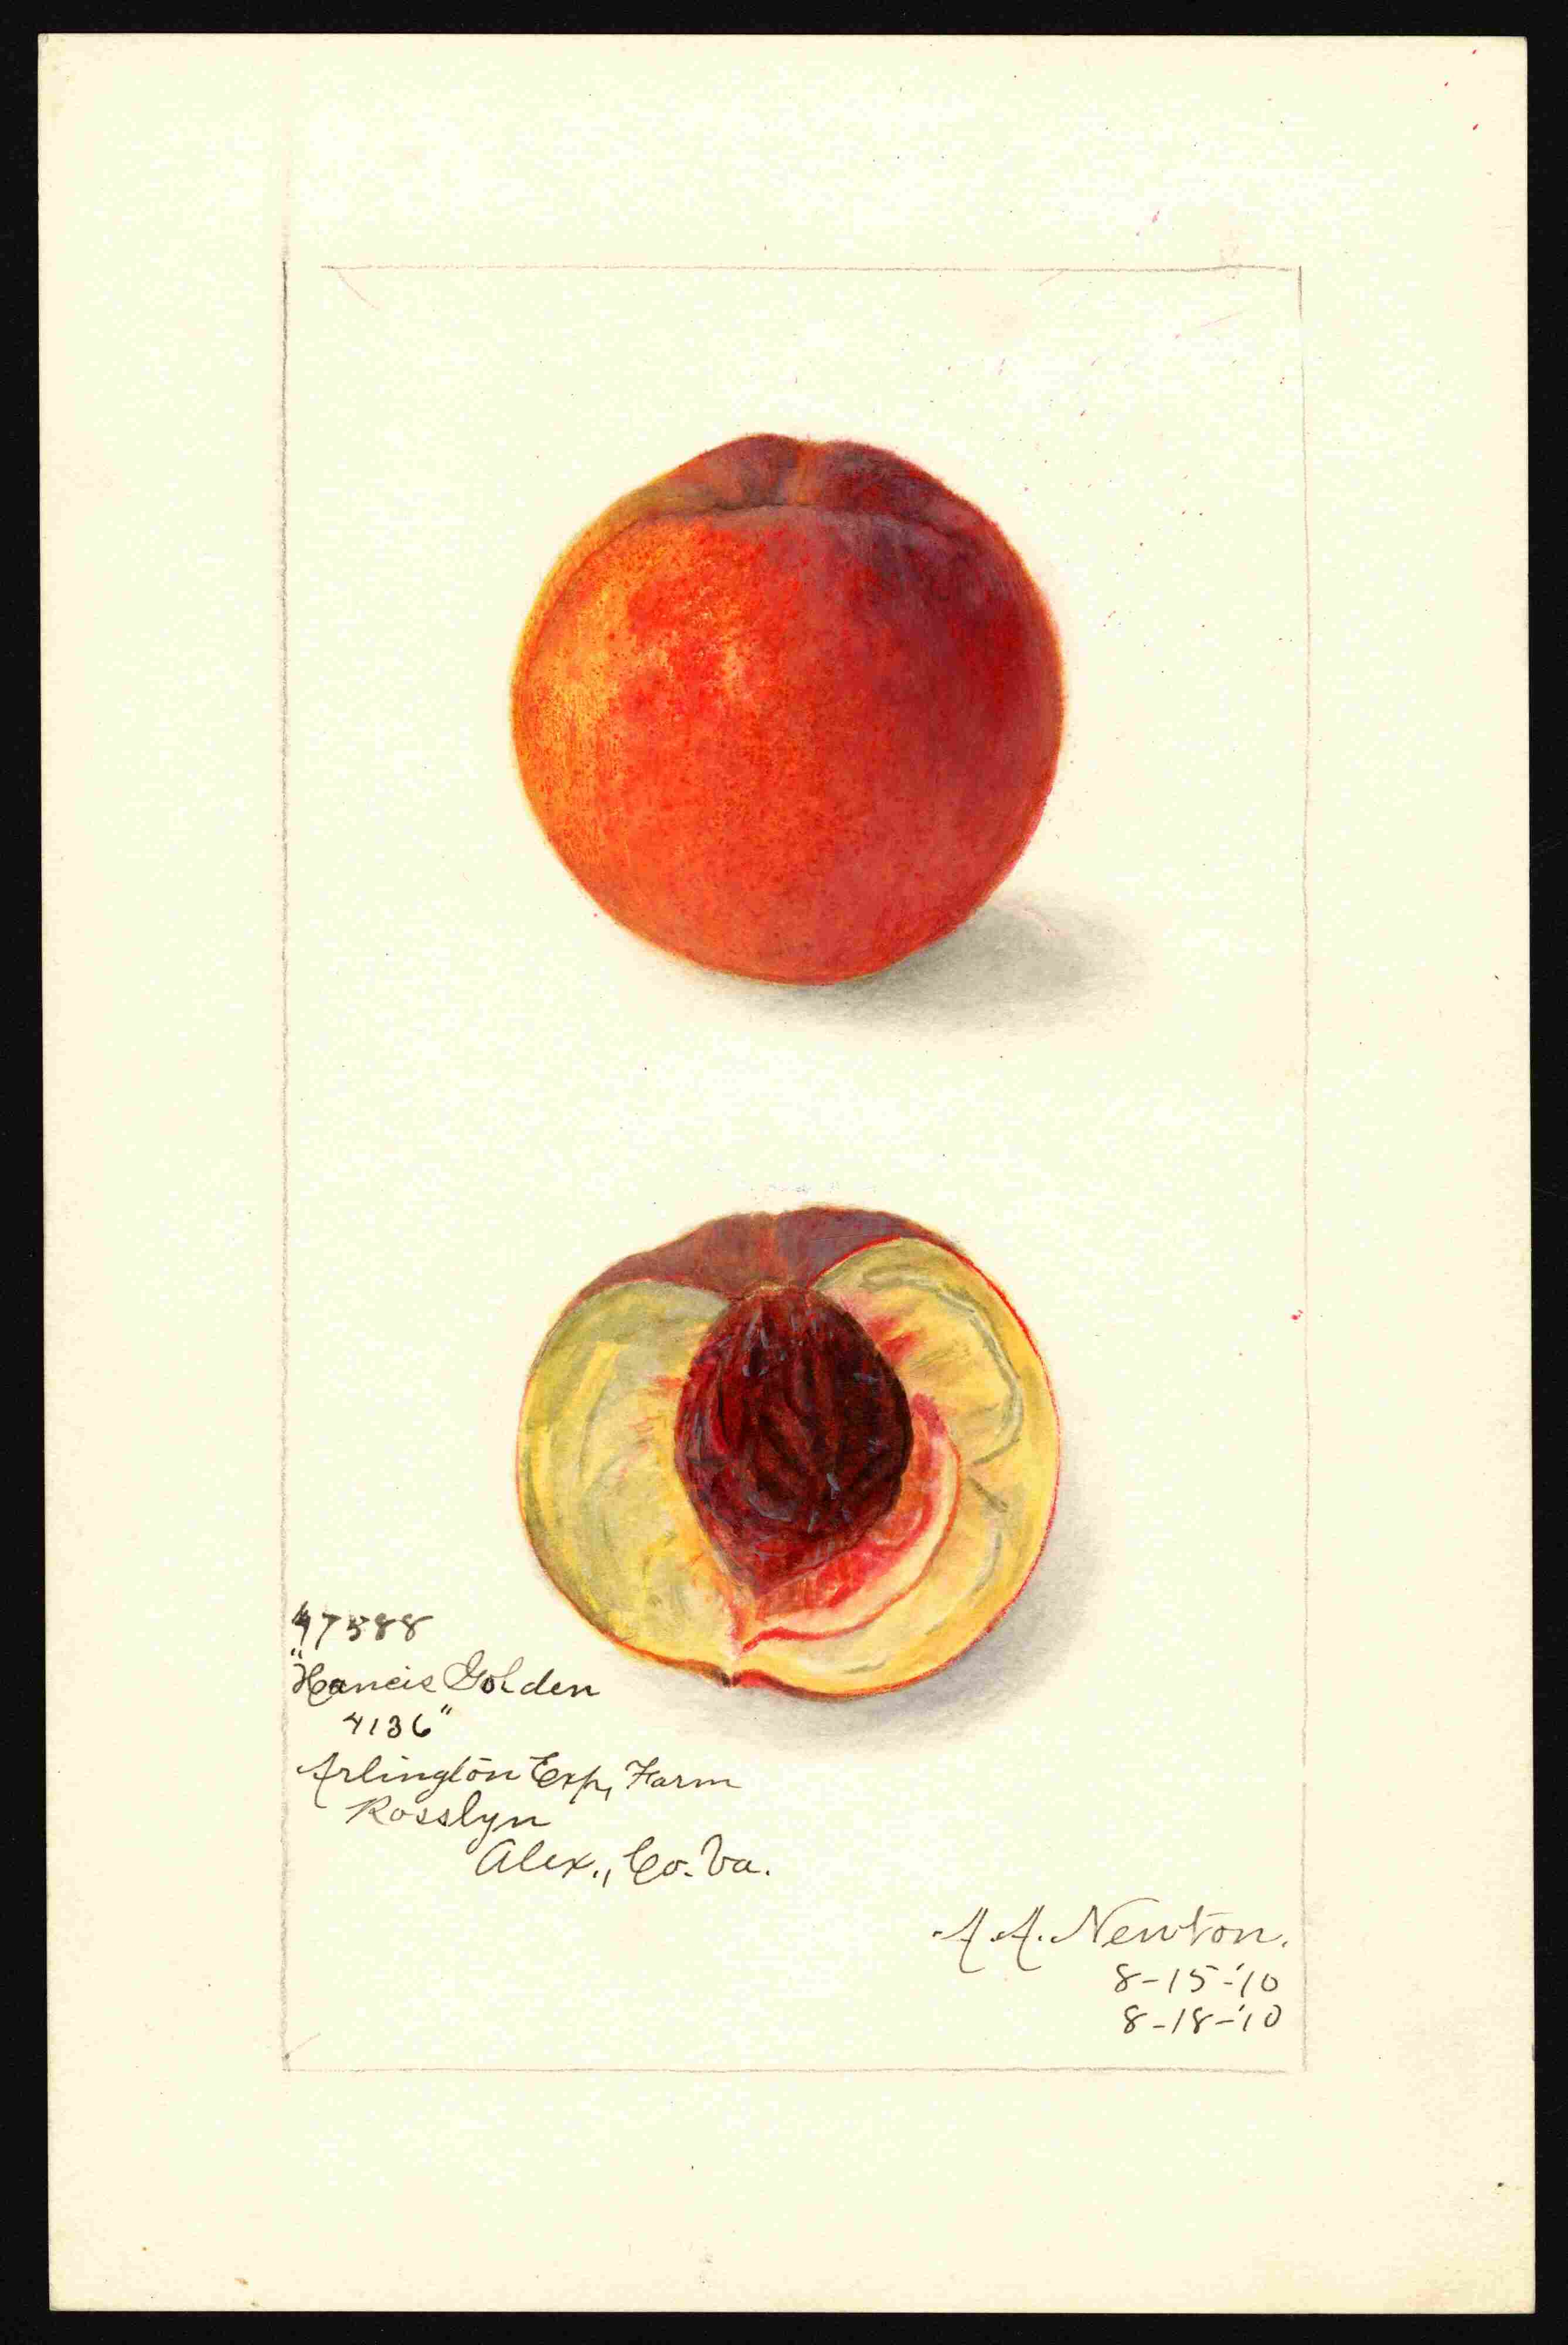 47588
"Hancis Golden
4136"
Arlington Exp, Farm
Rosslyn
Alex., Co. Va.
A. A. Newton.
8-15-'10
8-18-'10